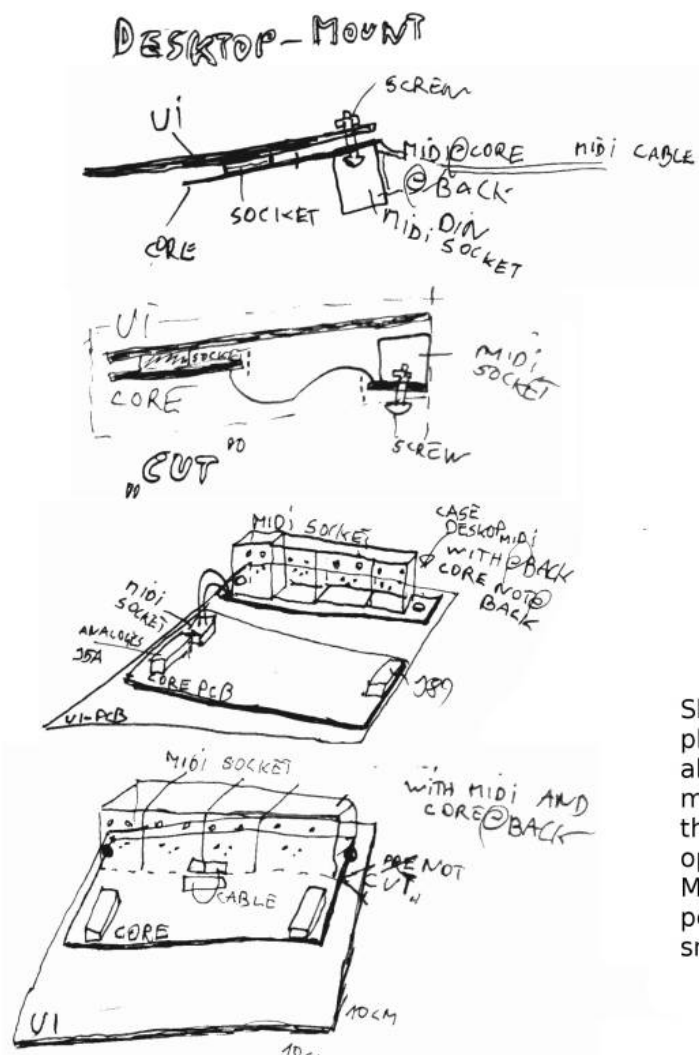 DESKTOP-MOUNT
SCREW
UI
MIDI@CORE
MIDI CABLE
@BACK
SOCKET
MIDI DIN
SOCKET
CORE
UI
SOCKE
MIDI
SOCKET
CORE
SCREW
"CUT"
MIDI SOCKET
CASE
DESKOP MIDI
WITH @BACK
CORE NOT@
BACK
MIDI
SOCKET
ANALOGES
J5A
CORE PCB
J89
UI-PCB
MIDI SOCKET
WITH MIDI AND
CORE@BACK
NOT
CUT"
CABLE
CORE
UI
10CM